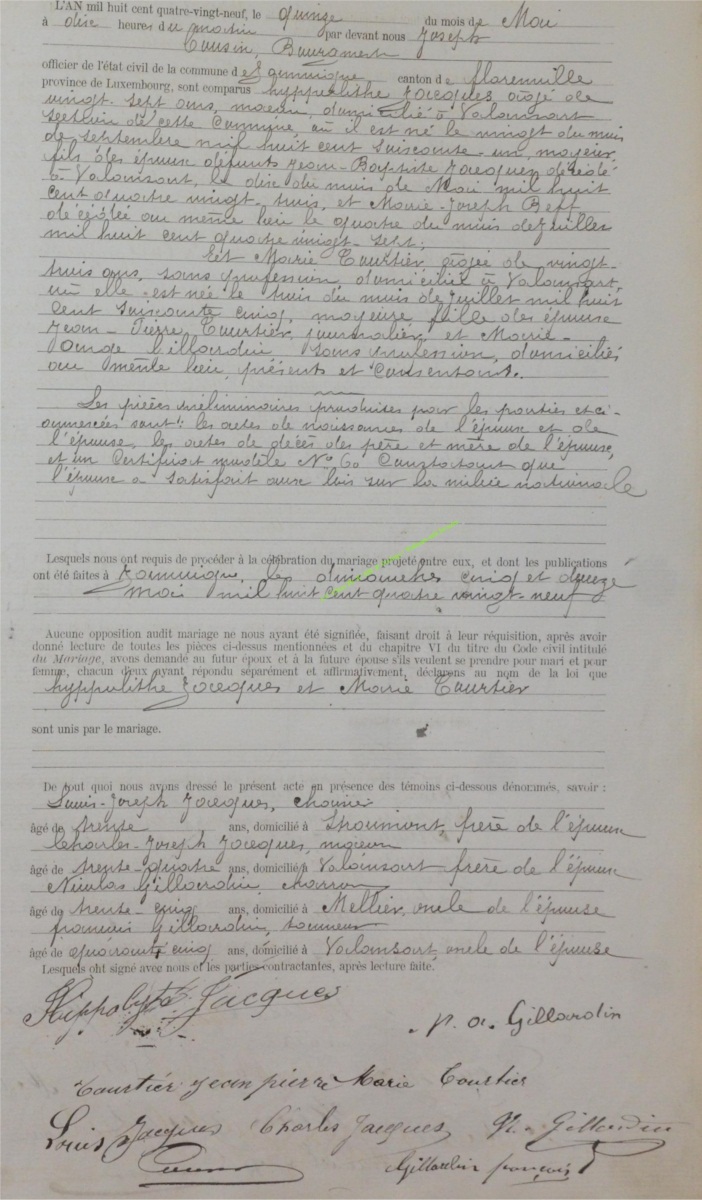 L'AN mil huit cent quatre-vingt-neuf, le quinze du mois de Mai
à dix heures du matin par devant nous Joseph
Cousin, Bourgmestre
officier de l'état civil de la commune de Jamoigne canton de florenville
province de Luxembourg, sont comparus hyppolithe Jacques âgé de
vingt-sept ans, macon, domicilié à Valansart
section de cette Commune, où il est né le vingt du mois
de septembre mil huit cent soixante-un, majeur,
fils des époux défunts Jean-Baptiste Jacques décédé
à Valansart, le dix du mois de Mai mil huit
cent quatre vingt-trois, et Marie-Joseph
décédée au même lieu le quatre du mois de Juillet
mil huit cent quatre vingt-sept;
Et Marie Tourtier âgée de vingt-
trois ans, sans profession, domiciliée à Valansart,
où elle est née le trois du mois de Juillet mil huit
cent soixante cinq, majeure, fille des époux
Jean-Pierre Tourtier, journalier, et Marie-
Gillardin, sans profession, domiciliés
au même lieu, présents et Consentant.
Les pièces préliminaires produites par les parties et ci-
annexées sont: les actes de naissances de l'époux et de
l'épouse, les actes de décès des père et mère de l'époux,
et un Certificat modèle No 6 Constatant que
l'époux a satisfait aux lois sur la milice nationale
Lesquels nous ont requis de procéder à la célébration du mariage projeté entre eux, et dont les publications
ont été faites à Jamoigne, les dimanches cinq et douze
mai mil huit cent quatre vingt-neuf
Aucune opposition audit mariage ne nous ayant été signifiée, faisant droit à leur réquisition, après avoir
donné lecture de toutes les pièces ci-dessus mentionnées et du chapitre VI du titre du Code civil intitulé
du Mariage, avons demandé au futur époux et à la future épouse s'ils veulent se prendre pour mari et pour
femme, chacun d'eux ayant répondu séparément et affirmativement, déclarons au nom de la loi que
hyppolithe Jacques et Marie Tourtier
sont unis par le mariage.
De tout quoi nous avons dressé le présent acte en présence des témoins ci-dessous dénommés, savoir :
Louis-Joseph Jacques,
âgé de trente ans, domicilié à Stoumont, frère de l'époux
Charles-Joseph Jacques, macon
âgé de trente-quatre ans, domicilié à Valansart frère de l'époux
Nicolas Gillardin, charron
âgé de trente-cinq ans, domicilié à Mellier, oncle de l'épouse
françois Gillardin,
âgé de quarante cinq ans, domicilié à Valansart, oncle de l'épouse
Lesquels ont signé avec nous et les parties contractantes, après lecture faite.
Hippolyte Jacques
Gillardin
Tourtier jean pierre Marie Tourtier
Louis Jacques Charles Jacques N. Gillardin
Cousin Gillardin françois